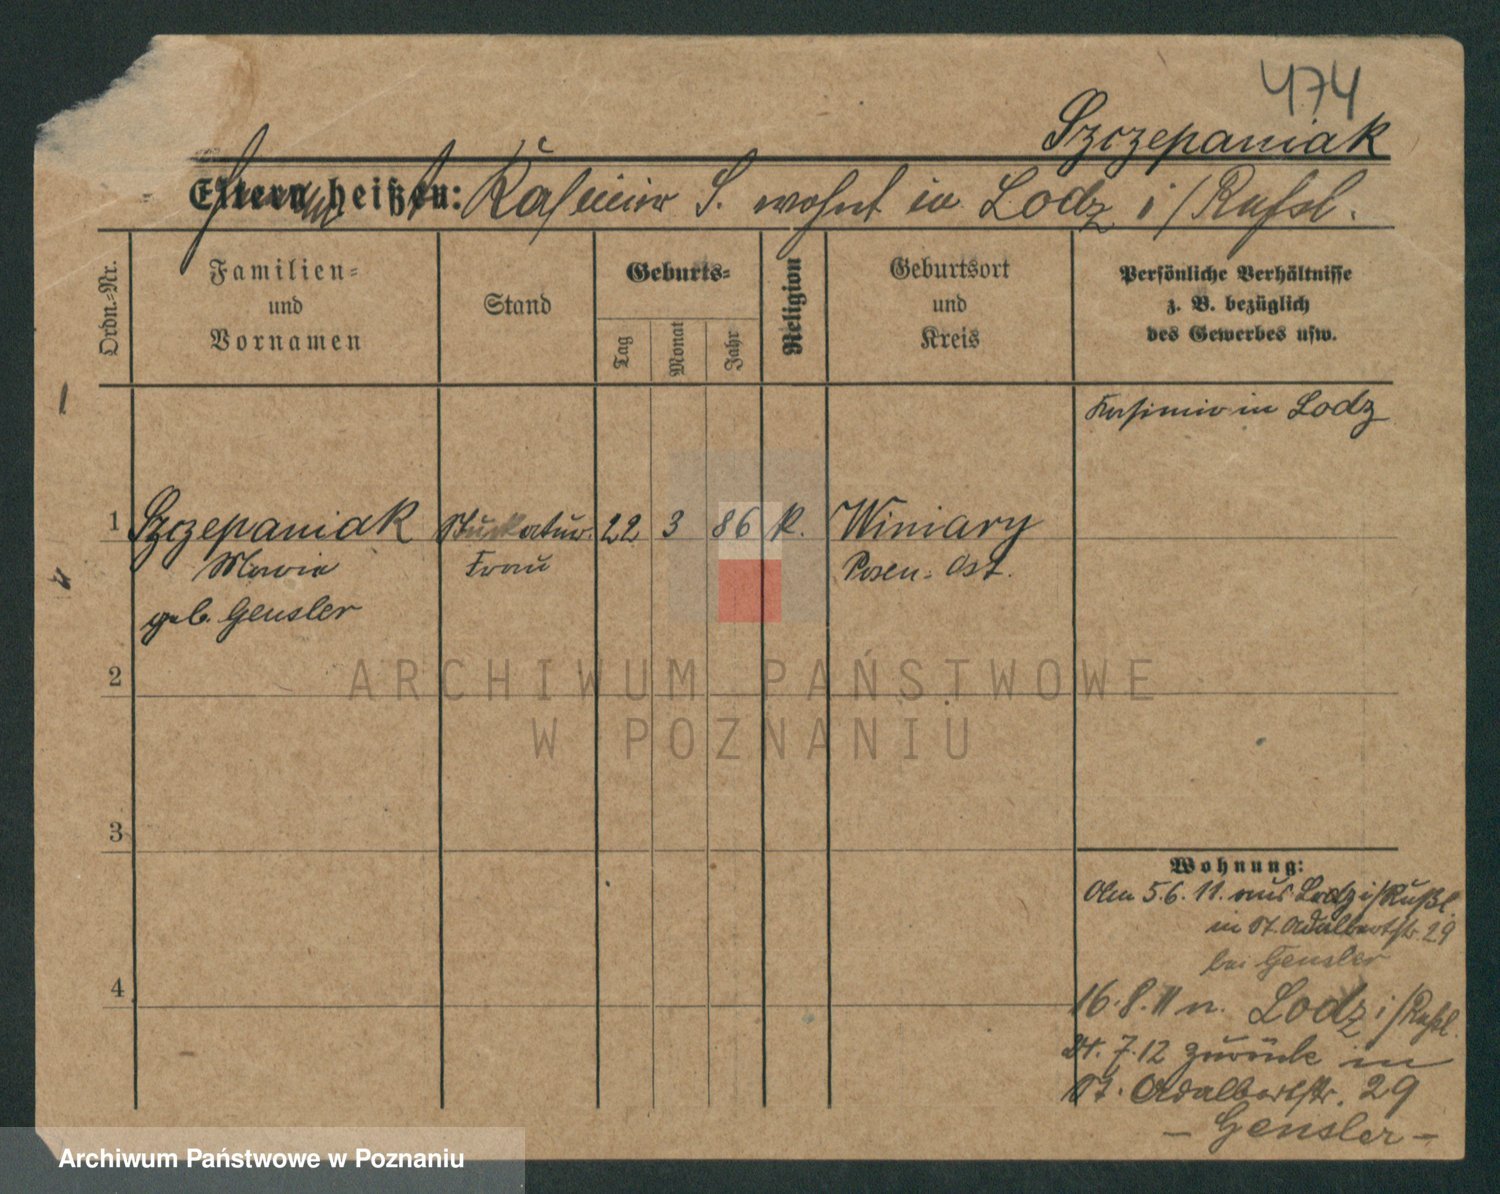 474
Szczepaniak
Eltern heißen: Kasimir S. wohnt in Lodz i/Russl.
Ordn.-Nr.
Familien-
und
Vornamen
Stand
Geburts-
Tag
Monat
Jahr
Religion
Geburtsort
und
Kreis
Persönliche Verhältnisse
z. B. bezüglich
des Gewerbes usw.
Kasimir in Lodz
1 Szczepaniak Stuckateur 22 3 86 k. Winiary
Maria Frau Posen-Ost.
geb. Gensler
2
3
4
Wohnung:
Am 5.6.11. aus Lodz i/Rußl.
in St. Adalbertstr. 29
bei Gensler
16.8.11 n. Lodz i/Russl.
7.12 zurück in
St. Adalbertstr. 29
- Gensler -
ARCHIWUM PAŃSTWOWE
W POZNANIU
Archiwum Państwowe w Poznaniu